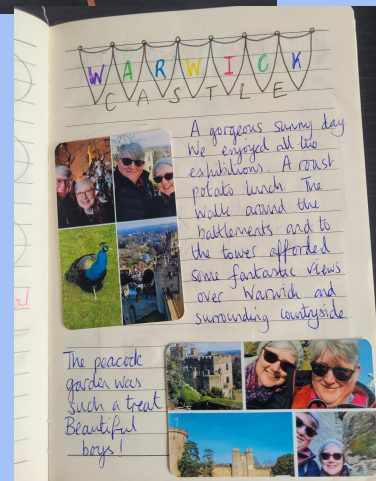 WARWICK
CASTLE
A gorgeous sunny day
We enjoyed all the
exhibitions. A roast
potato lunch. The
walk around the
battlements and to
the tower afforded
some fantastic views
over Warwick and
surrounding countryside.
The peacock
garden was
such a treat
Beautiful
boys!